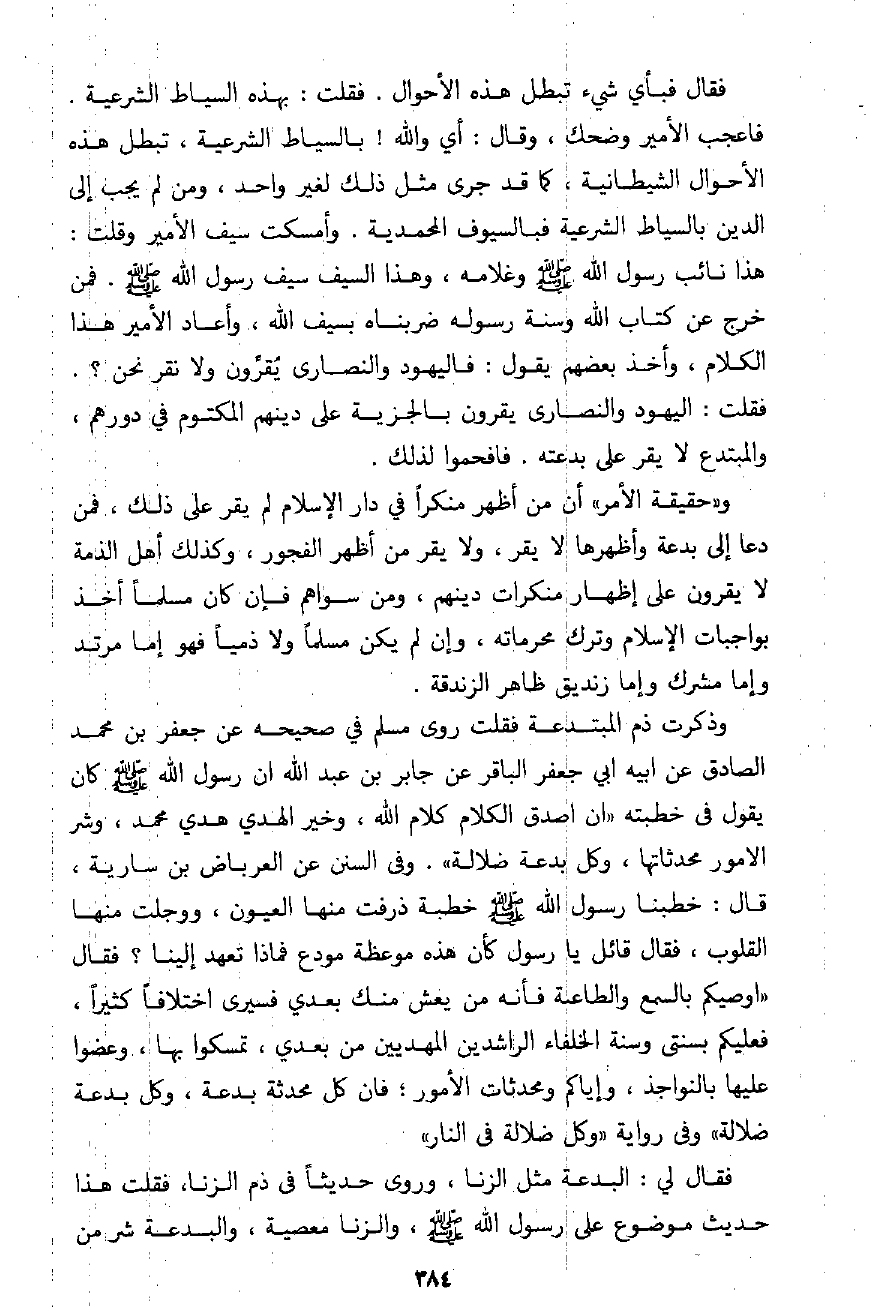 فقال فبأي شيء تبطل هذه الأحوال . فقلت : بهذه السياط الشرعية .
فاعجب الأمير وضحك ، وقال : أي والله ! بالسياط الشرعية ، تبطل هذه
الأحوال الشيطانية ، كما قد جرى مثل ذلك لغير واحد ، ومن لم يجب إلى
الدين بالسياط الشرعية فبالسيوف المحمدية . وأمسكت سيف الأمير وقلت :
هذا نائب رسول الله ﷺ وغلامه ، وهذا السيف سيف رسول الله ﷺ . فمن
خرج عن كتاب الله وسنة رسوله ضربناه بسيف الله ، وأعاد الأمير هذا
الكلام ، وأخذ بعضهم يقول : فاليهود والنصارى يُقرَّون ولا نقر نحن ؟ .
فقلت : اليهود والنصارى يقرون بالجزية على دينهم المكتوم في دورهم ،
والمبتدع لا يقر على بدعته . فافحموا لذلك .
و«حقيقة الأمر» أن من أظهر منكراً في دار الإسلام لم يقر على ذلك ، فمن
دعا إلى بدعة وأظهرها لا يقر ، ولا يقر من أظهر الفجور ، وكذلك أهل الذمة
لا يقرون على إظهار منكرات دينهم ، ومن سواهم فإن كان مسلماً أخذ
بواجبات الإسلام وترك محرماته ، وإن لم يكن مسلماً ولا ذمياً فهو إما مرتد
وإما مشرك وإما زنديق ظاهر الزندقة .
وذكرت ذم المبتدعة فقلت روى مسلم في صحيحه عن جعفر بن محمد
الصادق عن ابيه ابي جعفر الباقر عن جابر بن عبد الله ان رسول الله ﷺ كان
يقول فى خطبته «ان اصدق الكلام كلام الله ، وخير الهدي هدي محمد ، وشر
الامور محدثاتها ، وكل بدعة ضلالة» . وفى السنن عن العرباض بن سارية ،
قال : خطبنا رسول الله ﷺ خطبة ذرفت منها العيون ، ووجلت منها
القلوب ، فقال قائل يا رسول كأن هذه موعظة مودع فماذا تعهد إلينا ؟ فقال
«اوصيكم بالسمع والطاعة فأنه من يعش منك بعدي فسيرى اختلافاً كثيراً ،
فعليكم بسنتى وسنة الخلفاء الراشدين المهديين من بعدي ، تمسكوا بها ، وعضوا
عليها بالنواجذ ، وإياكم ومحدثات الأمور ؛ فان كل محدثة بدعة ، وكل بدعة
ضلالة» وفى رواية «وكل ضلالة فى النار»
فقال لي : البدعة مثل الزنا ، وروى حديثاً فى ذم الزنا، فقلت هذا
حديث موضوع على رسول الله ﷺ ، والزنا معصية ، والبدعة شر من
٣٨٤